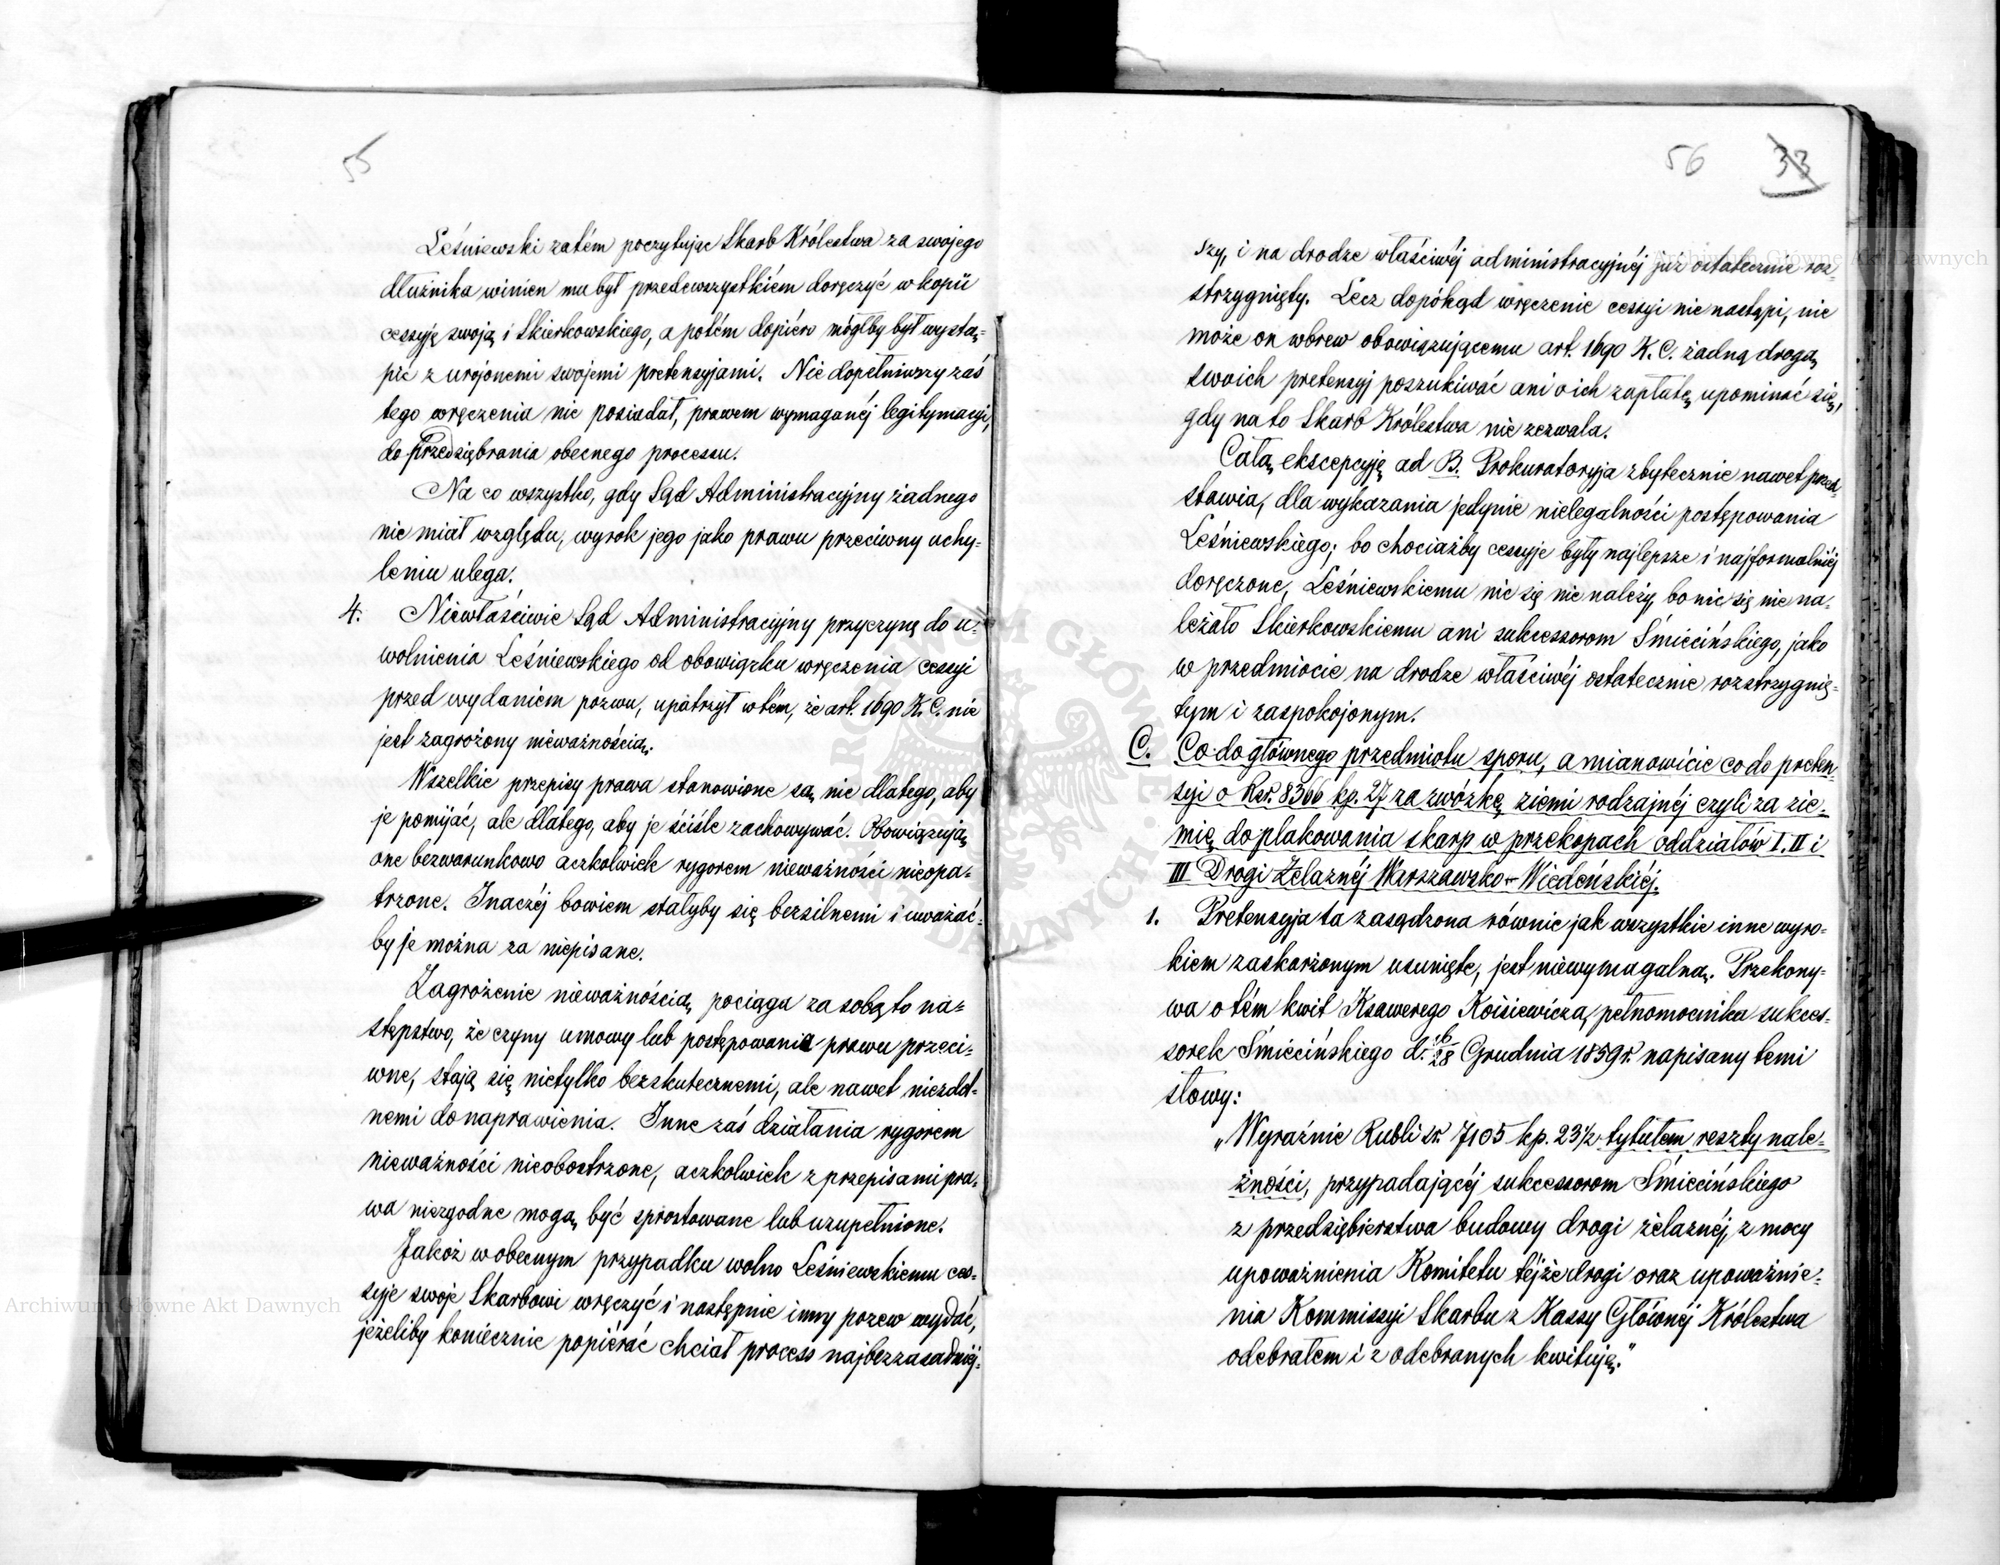 55
Leśniewski zatém poczytując Skarb Królestwa za swojego
dłużnika winien mu był przedewszystkiém doręczyć w kopii
cessyję swoją i Skierkowskiego, a potém dopiéro mógłby był wystą-
pić z urojonemi swojemi pretensyjami. Nie dopełniwszy zaś
tego wręczenia nie posiadał, prawem wymaganéj legitymacyi,
do przedsiębrania obecnego processu.
Na co wszystko, gdy Sąd Administracyjny żadnego
nie miał względu, wyrok jego jako prawu przeciwny uchy-
leniu ulega.
4. Niewłaściwie Sąd Administracyjny przyczynę do u-
wolnienia Leśniewskiego od obowiązku wręczenia cessyi
przed wydaniem pozwu, upatrzył w tém, że art. 1690 K. C. nie
jest zagrożony nieważnością.
Wszelkie przepisy prawa stanowione są, nie dlatego, aby
je pomijać, ale dlatego, aby je ściśle zachowywać. Obowiązują
one bezwarunkowo aczkolwiek rygorem nieważności nieopa-
trzone. Inaczéj bowiem stałyby się bezsilnemi i uważać-
by je można za niepisane.
Zagrożenie nieważnością, pociąga za sobą to na-
stępstwo, że czyny umowy lub postępowania prawu przeci-
wne, stają się nietylko bezskutecznemi, ale nawet niezdol-
nemi do naprawienia. Inne zaś działania rygorem
nieważności nieobostrzone, aczkolwiek z przepisami pra-
wa niezgodne mogą być sprostowane lub uzupełnione.
Jakoż w obecnym przypadku wolno Leśniewskiemu ces-
syje swoje Skarbowi wręczyć i następnie inny pozew wydać,
jeżeliby koniecznie popiérać chciał process najbezzasadniéj-
56 33
szy, i na drodze właściwéj administracyjnéj już ostatecznie roz-
strzygnięty. Lecz dopókąd wręczenie cessyi nie nastąpi, nie
może on wbrew obowiązującemu art. 1690 K. C. żadną drogą
swoich pretensyj poszukiwać ani o ich zapłatę upominać się,
gdy na to Skarb Królestwa nie zezwala.
Całą ekscepcyję ad B. Prokuratoryja zbytecznie nawet przed-
stawia, dla wykazania jedynie nielegalności postępowania
Leśniewskiego; bo chociażby cessyje były najlepsze i najformalniéj
doręczone, Leśniewskiemu nic się nie należy, bo nic się nie na-
leżało Skierkowskiemu ani sukcessorom Śmiecińskiego, jako
w przedmiocie na drodze właściwéj ostatecznie rozstrzygnię-
tym i zaspokojonym.
C. Co do głównego przedmiotu sporu, a mianowicie co do preten-
syi o Rsr. 8366 kp. 27 za zwózkę ziemi rodzajnéj czyli za zie-
mię do plakowania skarp w przekopach oddziałów I. II i
III Drogi Żelaznéj Warszawsko-Wiedeńskiéj.
1. Pretensyja ta zasądzona równie jak wszystkie inne wyro-
kiem zaskarżonym usunięte, jest niewymagalną. Przekony-
wa o tém kwit Ksawerego Koisiewicza, pełnomocnika sukces-
sorek Śmiecińskiego d. 16/28 Grudnia 1859 r. napisany temi
słowy:
„Wyraźnie Rubli sr. 7105 kp. 23½ tytułem reszty nale-
żności, przypadającéj sukcessorom Śmiecińskiego
z przedsiębierstwa budowy drogi żelaznéj, z mocy
upoważnienia Komitetu téjże drogi oraz upoważnie-
nia Kommissyi Skarbu z Kassy Głównéj Królestwa
odebrałem i z odebranych kwituję."
Archiwum Główne Akt Dawnych
Archiwum Główne Akt Dawnych
ARCHIWUM GŁÓWNE AKT DAWNYCH